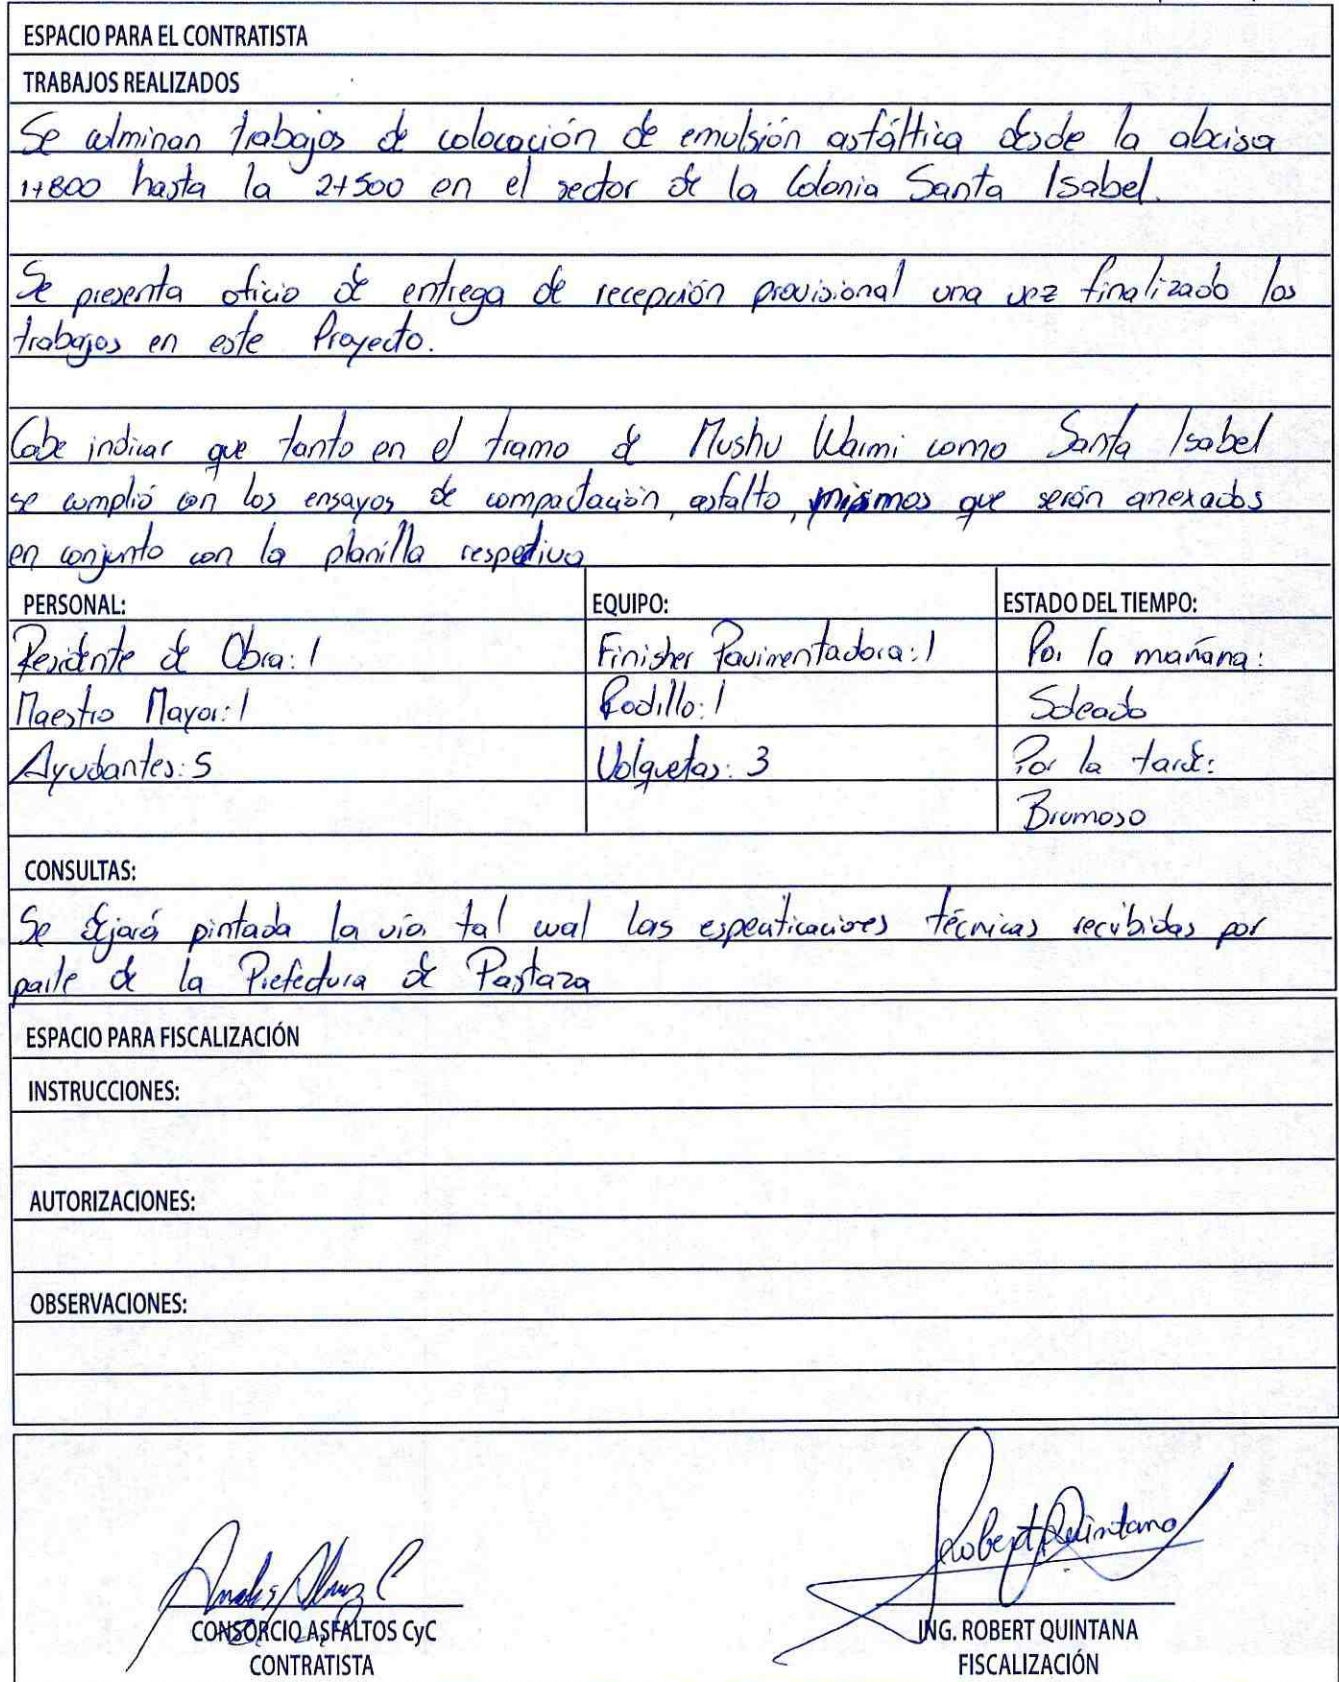 ESPACIO PARA EL CONTRATISTA
TRABAJOS REALIZADOS
Se culminan trabajos de colocación de emulsión asfáltica desde la abcisa
1+800 hasta la 2+500 en el sector de la Colonia Santa Isabel.
Se presenta oficio de entrega de recepción provisional una vez finalizado los
trabajos en este Proyecto.
Cabe indicar que tanto en el tramo de Mushu Warmi como Santa Isabel
se cumplió con los ensayos de compactación, asfalto, mismos que serán anexados
en conjunto con la planilla respectiva
PERSONAL: EQUIPO: ESTADO DEL TIEMPO:
Residente de Obra: 1 Finisher Pavimentadora: 1 Por la mañana:
Maestro Mayor: 1 Rodillo: 1 Soleado
Ayudantes: 5 Volquetas: 3 Por la tarde:
Brumoso
CONSULTAS:
Se dejará pintada la vía tal cual las especificaciones técnicas recibidas por
parte de la Prefectura de Pastaza
ESPACIO PARA FISCALIZACIÓN
INSTRUCCIONES:
AUTORIZACIONES:
OBSERVACIONES:
Robert Quintana
CONSORCIO ASFALTOS CyC ING. ROBERT QUINTANA
CONTRATISTA FISCALIZACIÓN